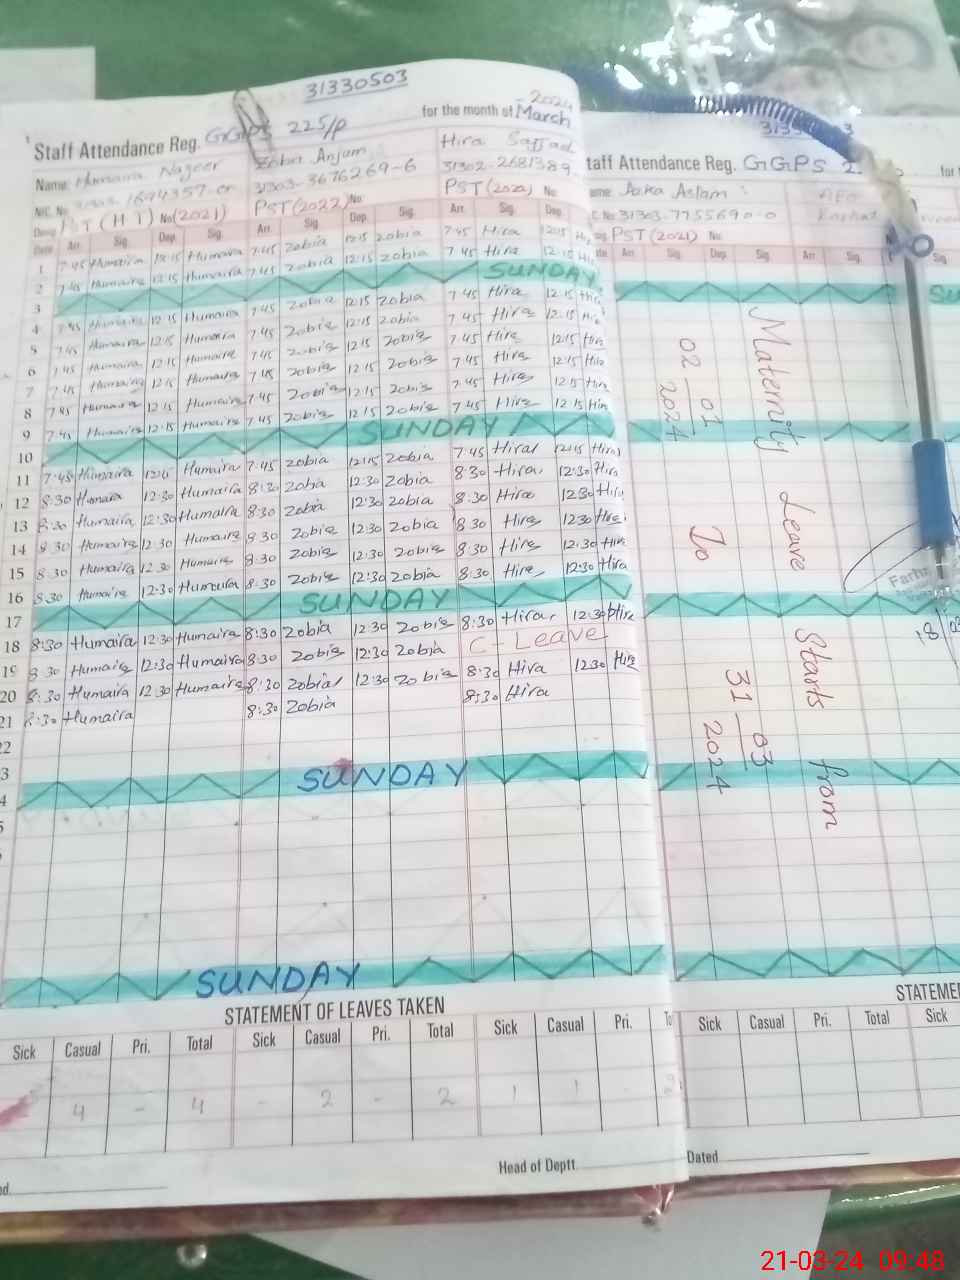 31330503
2024
Staff Attendance Reg. GGPS 225/P for the month of March
Name: Humaira Nazeer Zobia Anjum Hira Sajjad
N.I.C. No. 31303-1694357- 31303-3676269-6 31302-2681389
Desig. PST (HT) No (2021) PST (2022) No PST (2022) No
Date Arr. Sig. Dep. Sig. Arr. Sig. Dep. Sig. Arr. Sig. Dep.
1 7:45 Humaira 12:15 Humaira 7:45 Zobia 12:15 Zobia 7:45 Hira 12:15 Hira
2 7:45 Humaira 12:15 Humaira 7:45 Zobia 12:15 Zobia 7:45 Hira 12:15 Hira
3 SUNDAY
4 7:45 Humaira 12:15 Humaira 7:45 Zobia 12:15 Zobia 7:45 Hira 12:15 Hira
5 7:45 Humaira 12:15 Humaira 7:45 Zobia 12:15 Zobia 7:45 Hira 12:15 Hira
6 7:45 Humaira 12:15 Humaira 7:45 Zobia 12:15 Zobia 7:45 Hira 12:15 Hira
7 7:45 Humaira 12:15 Humaira 7:45 Zobia 12:15 Zobia 7:45 Hira 12:15 Hira
8 7:45 Humaira 12:15 Humaira 7:45 Zobia 12:15 Zobia 7:45 Hira 12:15 Hira
9 7:45 Humaira 12:15 Humaira 7:45 Zobia 12:15 Zobia 7:45 Hira 12:15 Hira
10 SUNDAY
11 7:45 Humaira Humaira 7:45 Zobia 12:15 Zobia 7:45 Hira 12:15 Hira
12 8:30 Humaira 12:30 Humaira 8:30 Zobia 12:30 Zobia 8:30 Hira 12:30 Hira
13 8:30 Humaira 12:30 Humaira 8:30 Zobia 12:30 Zobia 8:30 Hira 12:30 Hira
14 8:30 Humaira 12:30 Humaira 8:30 Zobia 12:30 Zobia 8:30 Hira 12:30 Hira
15 8:30 Humaira 12:30 Humaira 8:30 Zobia 12:30 Zobia 8:30 Hira 12:30 Hira
16 8:30 Humaira 12:30 Humaira 8:30 Zobia 12:30 Zobia 8:30 Hira 12:30 Hira
17 SUNDAY
18 8:30 Humaira 12:30 Humaira 8:30 Zobia 12:30 Zobia 8:30 Hira 12:30 Hira
19 8:30 Humaira 12:30 Humaira 8:30 Zobia 12:30 Zobia C-Leave
20 8:30 Humaira 12:30 Humaira 8:30 Zobia 12:30 Zobia 8:30 Hira 12:30 Hira
21 8:30 Humaira 8:30 Zobia 8:30 Hira
22
3
4 SUNDAY
5
SUNDAY
STATEMENT OF LEAVES TAKEN
Sick Casual Pri. Total Sick Casual Pri. Total Sick Casual Pri.
4 - 4 - 2 - 2 1 1 - 2
Head of Deptt.
taff Attendance Reg. GGPS 2
ame: Aska Aslam
C. No. 31303-7755690-0
PST (2021) No.
AEO
Arr. Sig. Dep. Sig. Arr. Sig. Sig.
SU
Maternity Leave Starts from
02 01 2024 To 31 03 2024
Farha
18
STATEME
Sick Casual Pri. Total Sick
Dated
21-03-24 09:48